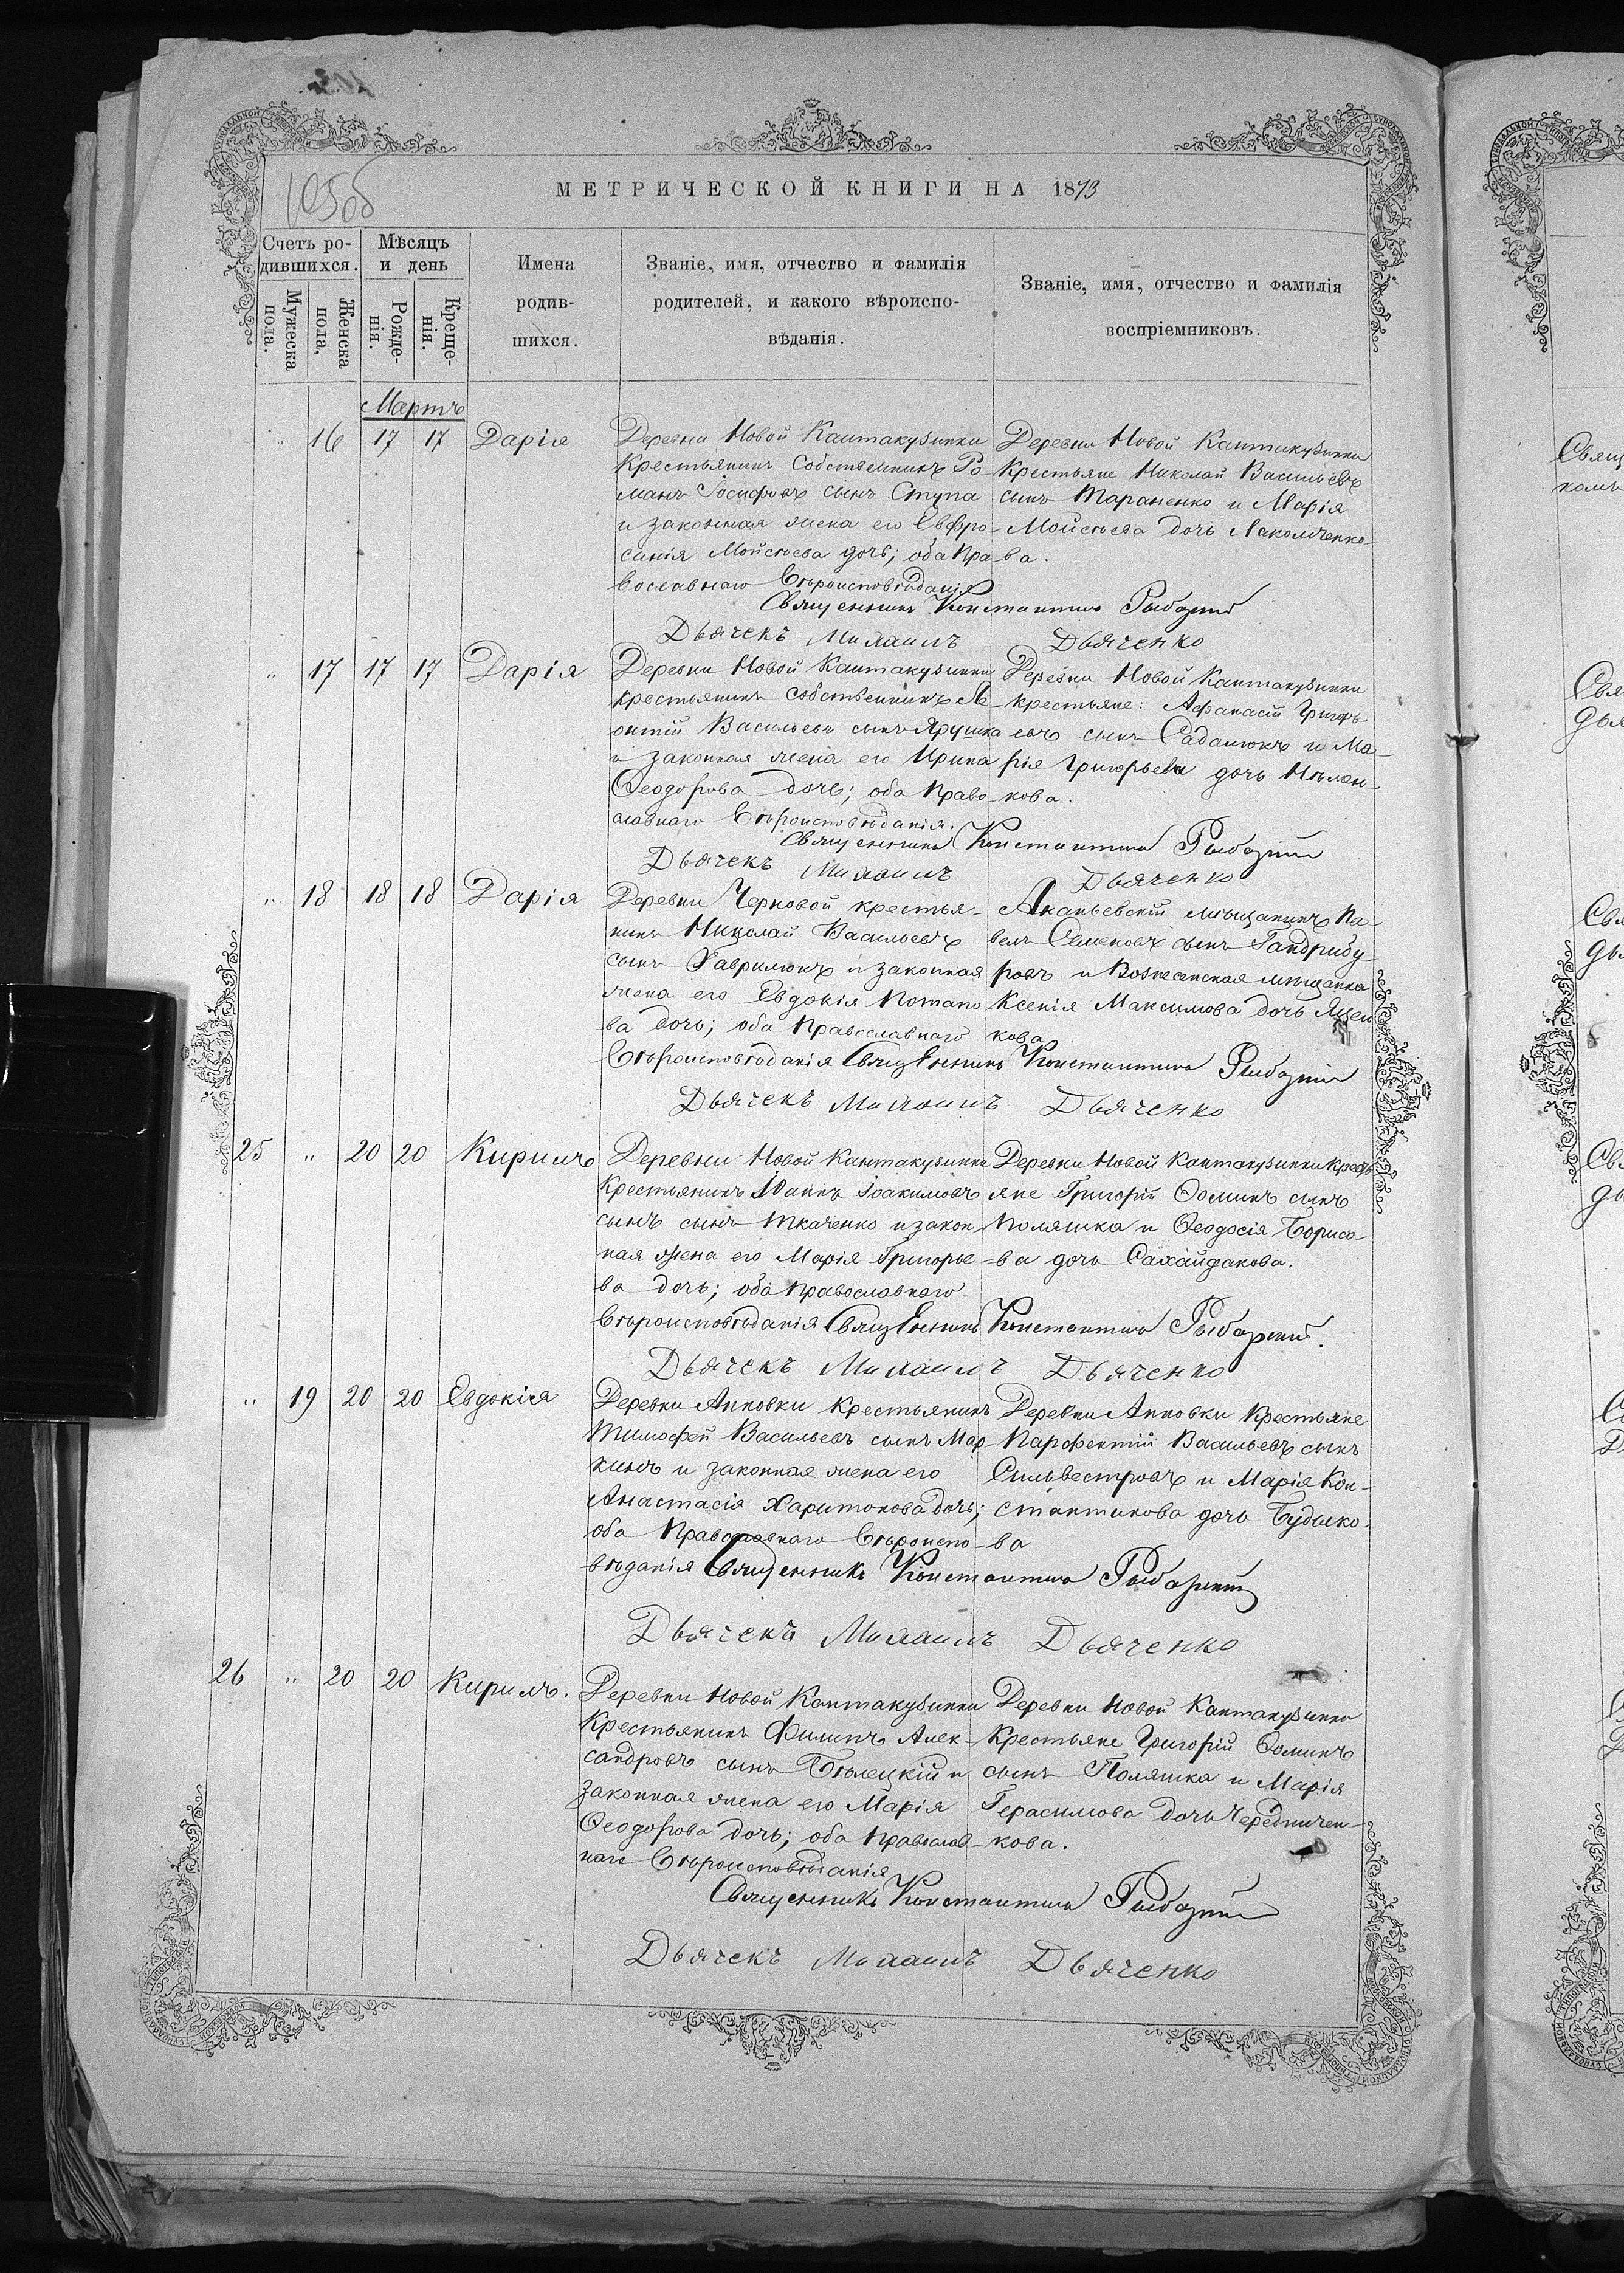 105об
МЕТРИЧЕСКОЙ КНИГИ НА 1873
Счетъ ро-
дившихся.
Мужеска
пола.
Женска
пола.
Мѣсяцъ
и день
Рожде-
нія.
Креще-
нія.
Имена
родив-
шихся.
Званіе, имя, отчество и фамилія
родителей, и какого вѣроиспо-
вѣданія.
Званіе, имя, отчество и фамилія
воспріемниковъ.
Мартъ
" 16 17 17 Дарія
Деревни Новой Кантакузинки
Крестьянинъ Собственникъ Ро-
манъ Іосифовъ сынъ Ступа
и законная жена его Евфро-
синія Мойсеева дочь; оба Пра-
вославнаго Вѣроисповѣданія
Деревни Новой Кантакузинки
Крестьяне Николай Васильевъ
сынъ Тараненко и Марія
Мойсеева дочь Лакомченко-
ва.
Священникъ Константинъ
Дьячекъ Михаилъ Дьяченко
" 17 17 17 Дарія
Деревни Новой Кантакузинки
крестьянинъ собственникъ Ле-
онтій Васильевъ сынъ Ярушка
и законная жена его Ирина
Ѳеодорова дочь; оба Право-
славнаго Вѣроисповѣданія.
Деревни Новой Кантакузинки
крестьяне: Афанасій Григорь-
евъ сынъ Садалюкъ и Ма-
рія Григорьева дочь
кова.
Священникъ Константинъ
Дьячекъ Михаилъ Дьяченко
" 18 18 18 Дарія
Деревни Черковой крестья-
нинъ Николай Васильевъ
сынъ Гаврилюкъ и законная
жена его Евдокія Потапо-
ва дочь; оба Православнаго
Вѣроисповѣданія
Ананьевскій мѣщанинъ Па-
велъ Семеновъ сынъ Гандрабу-
ровъ и Вознесенская мѣщанка
Ксенія Максимова дочь
кова
Священникъ Константинъ
Дьячекъ Михаилъ Дьяченко
25 " 20 20 Кирилъ
Деревни Новой Кантакузинки
Крестьянинъ Іоаннъ Іоакимовъ
сынъ сынъ Ткаченко и закон-
ная жена его Марія Григорье-
ва дочь; оба православнаго
Вѣроисповѣданія
Деревни Новой Кантакузинки Кресть-
яне Григорій Ѳоминъ сынъ
Поляшка и Ѳеодосія Борисо-
ва дочь Сахайдакова.
Священникъ Константинъ
Дьячекъ Михаилъ Дьяченко
" 19 20 20 Евдокія
Деревни Анновки Крестьянинъ
Тимофей Васильевъ сынъ Мар-
кинъ и законная жена его
Анастасія Харитонова дочь;
оба Православнаго Вѣроиспо-
вѣданія
Деревни Анновки Крестьяне
Парфентій Васильевъ сынъ
Сильвестровъ и Марія Кон-
стантинова дочь Будыко-
ва
Священникъ Константинъ
Дьячекъ Михаилъ Дьяченко
26 " 20 20 Кирилъ.
Деревни Новой Кантакузинки
Крестьянинъ Филипъ Алек-
сандровъ сынъ Бѣлецкій и
законная жена его Марія
Ѳеодорова дочь; оба православ-
наго Вѣроисповѣданія
Деревни Новой Кантакузинки
Крестьяне Григорій Ѳоминъ
сынъ Поляшка и Марія
Герасимова дочь Чередничен-
кова.
Священникъ Константинъ
Дьячекъ Михаилъ Дьяченко